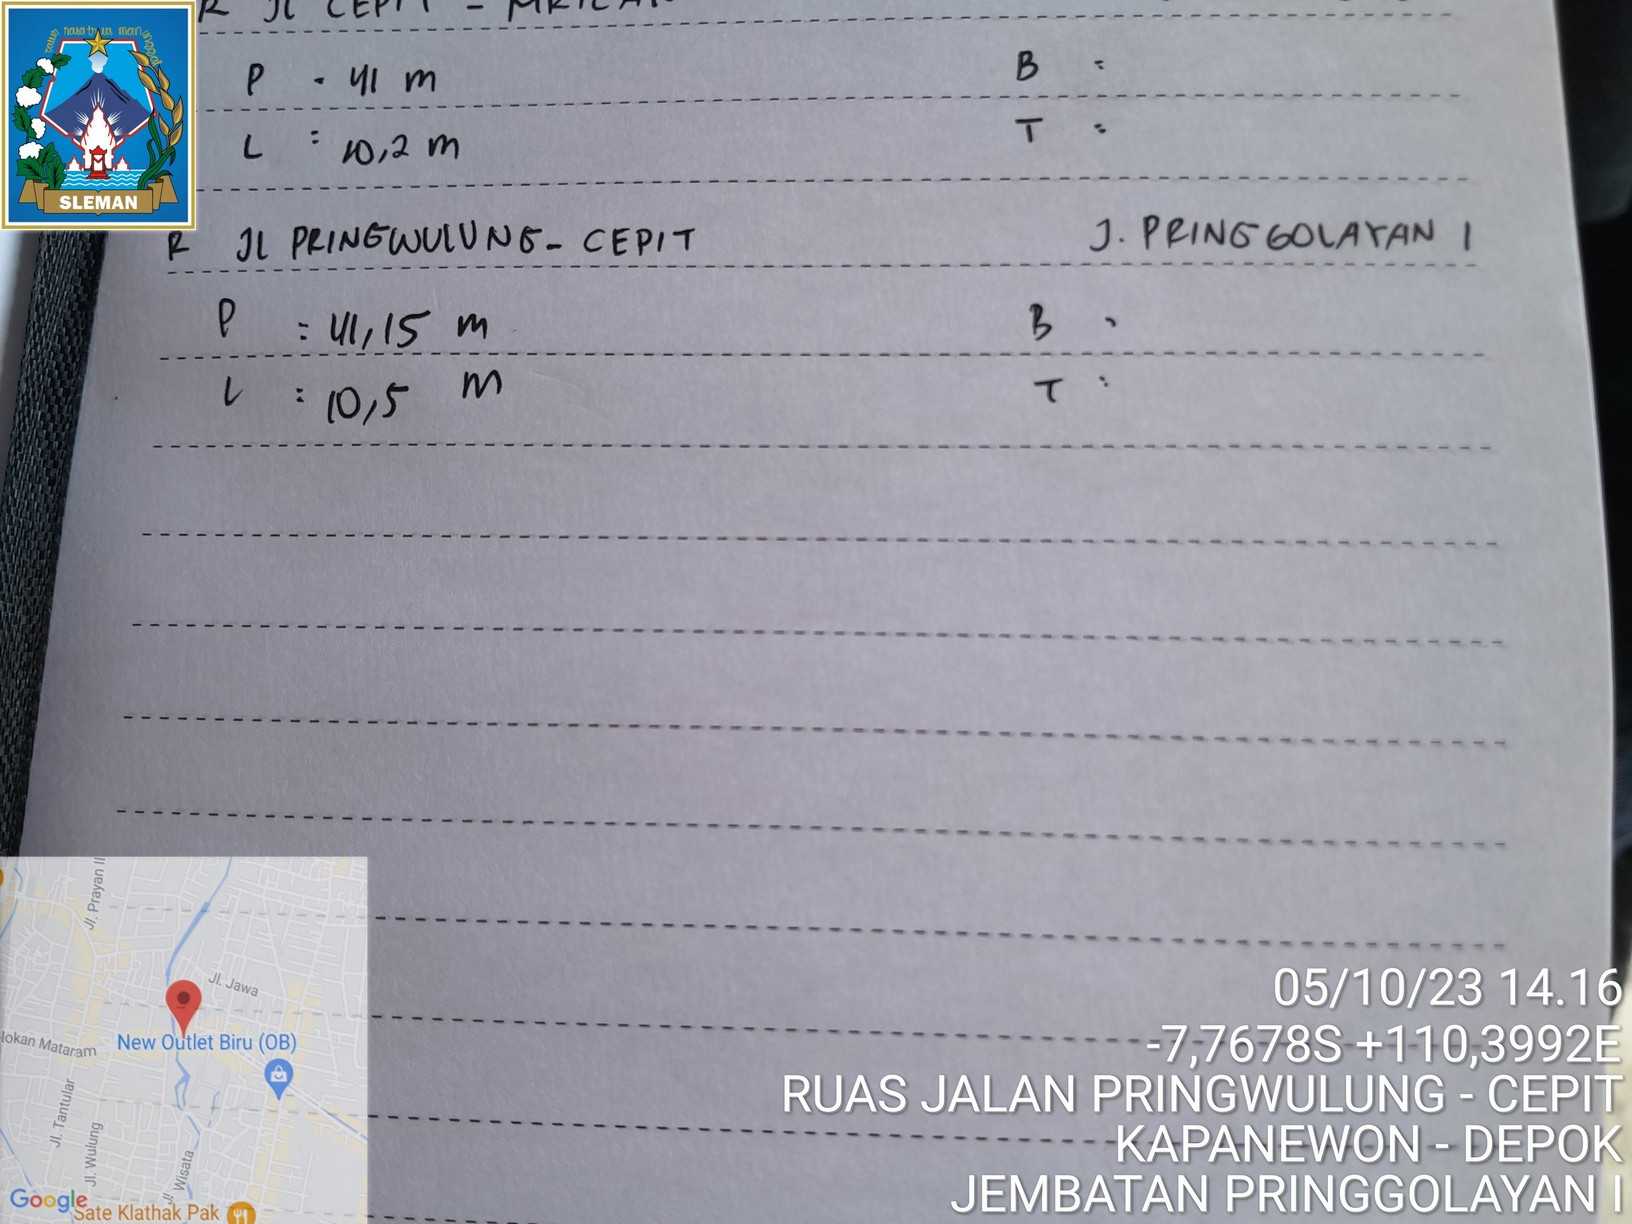 R JL CEPIT - MRICAN
P = 41 m B =
L = 10,2 m T =
R JL PRINGWULUNG - CEPIT J. PRINGGOLAYAN I
P = 41,15 m B =
L = 10,5 m T :
SLEMAN
Jl. Prayan II
Jl. Jawa
New Outlet Biru (OB)
lokan Mataram
Jl. Tantular
Jl. Wulung
Jl. Wisata
Google
Sate Klathak Pak
05/10/23 14.16
-7,7678S +110,3992E
RUAS JALAN PRINGWULUNG - CEPIT
KAPANEWON - DEPOK
JEMBATAN PRINGGOLAYAN I